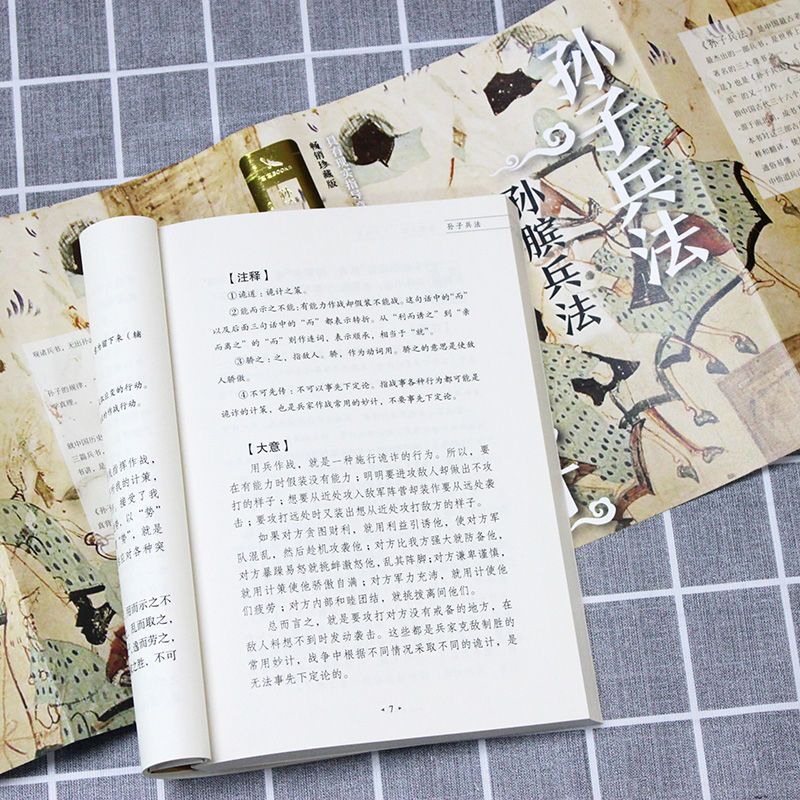 孙子兵法
【注释】
①诡道：诡计之策。
②能而示之不能：有能力作战却假装不能战。这句话中的“而”
以及后面三句话中的“而”都表示转折。从“利而诱之”到“亲
而离之”的“而”则作连词，表示顺承，相当于“就”。
③骄之：之，指敌人。骄，作为动词用。骄之的意思是使敌
人骄傲。
④不可先传：不可以事先下定论。指战事各种行为都可能是
诡诈的计策，也是兵家作战常用的妙计，不要事先下定论。
【大意】
用兵作战，就是一种施行诡诈的行为。所以，要
在有能力时假装没有能力；明明要进攻敌人却做出不攻
打的样子；想要从近处攻入敌军阵营却装作要从远处袭
击；要攻打远处时又装出想从近处攻打敌方的样子。
如果对方贪图财利，就用利益引诱他，使对方军
队混乱，然后趁机攻袭他；对方比我方强大就防备他，
对方暴躁易怒就挑衅激怒他，乱其阵脚；对方谦卑谨慎，
就用计策使他骄傲自满；对方军力充沛，就用计使他
们疲劳；对方内部和睦团结，就挑拨离间他们。
总而言之，就是要攻打对方没有戒备的地方，在
敌人料想不到时发动袭击。这些都是兵家克敌制胜的
常用妙计，战争中根据不同情况采取不同的诡计，是
无法事先下定论的。
7
留下来（辅
应变的行动。
时作战行动。
指挥作战，
我的计策，
，接受了我
，以“势”
“势”，就是
应对各种突
而示之不
乱而取之，
逸而劳之，
之胜，不可
孙子兵法
孙膑兵法
畅销珍藏版